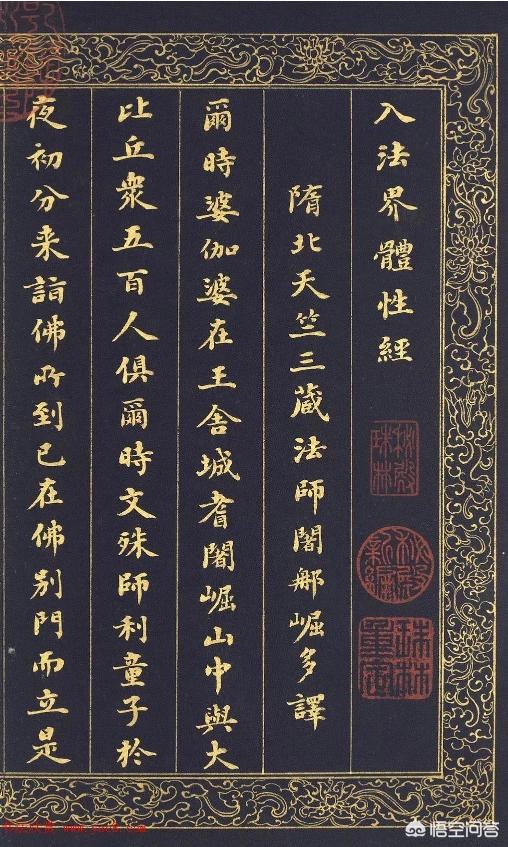 入法界體性經
隋北天竺三藏法師闍那崛多譯
爾時婆伽婆在王舍城耆闍崛山中與大
比丘衆五百人俱爾時文殊師利童子於
夜初分来詣佛所到已在佛別門而立是
秘殿
珠林
珠林
重定
悟空问答